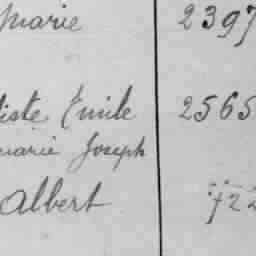 Marie 2397
tiste Emile 2565
marie Joseph
Albert 722